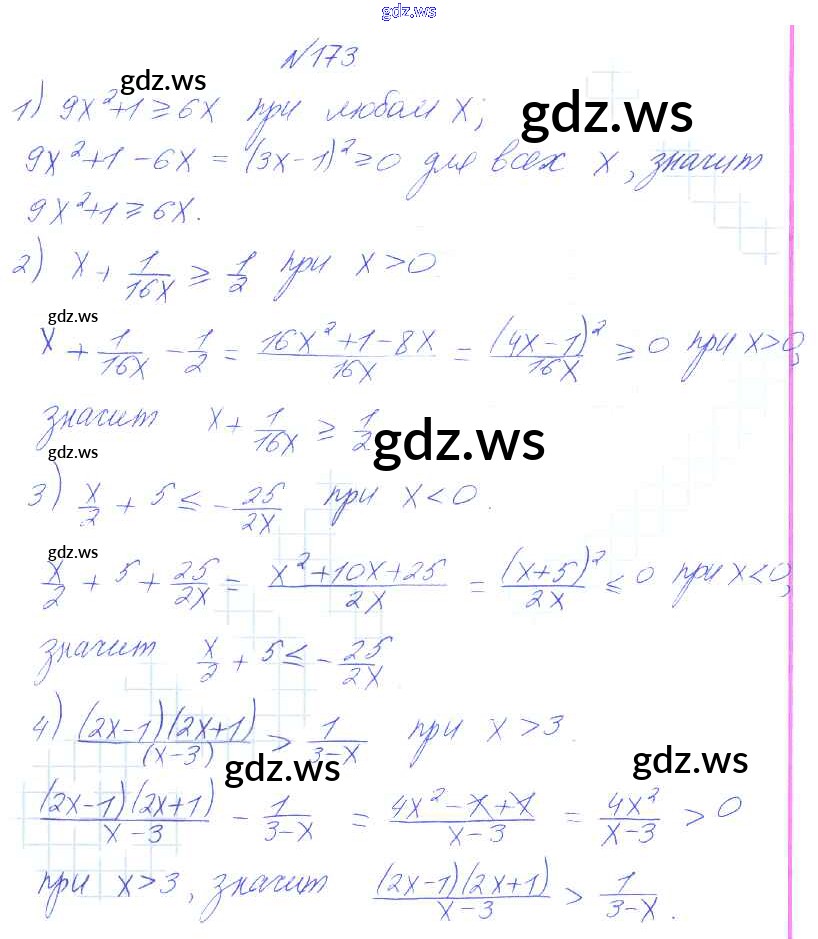 gdz.ws
N173
gdz.ws
1) 9x²+1 ≥ 6x при любом x;
gdz.ws
9x²+1 - 6x = (3x-1)² ≥ 0 для всех x, значит
9x²+1 ≥ 6x.
2) x + 1/16x ≥ 1/2 при x > 0
gdz.ws
x + 1/16x - 1/2 = 16x²+1-8x/16x = (4x-1)²/16x ≥ 0 при x>0,
значит x + 1/16x ≥ 1/2
gdz.ws
gdz.ws
3) x/2 + 5 ≤ - 25/2x при x < 0.
gdz.ws
x/2 + 5 + 25/2x = x²+10x+25/2x = (x+5)²/2x ≤ 0 при x<0,
значит x/2 + 5 ≤ - 25/2x
4) (2x-1)(2x+1)/(x-3) > 1/3-x при x > 3.
gdz.ws
gdz.ws
(2x-1)(2x+1)/x-3 - 1/3-x = 4x²-1+1/x-3 = 4x²/x-3 > 0
при x>3, значит (2x-1)(2x+1)/x-3 > 1/3-x.